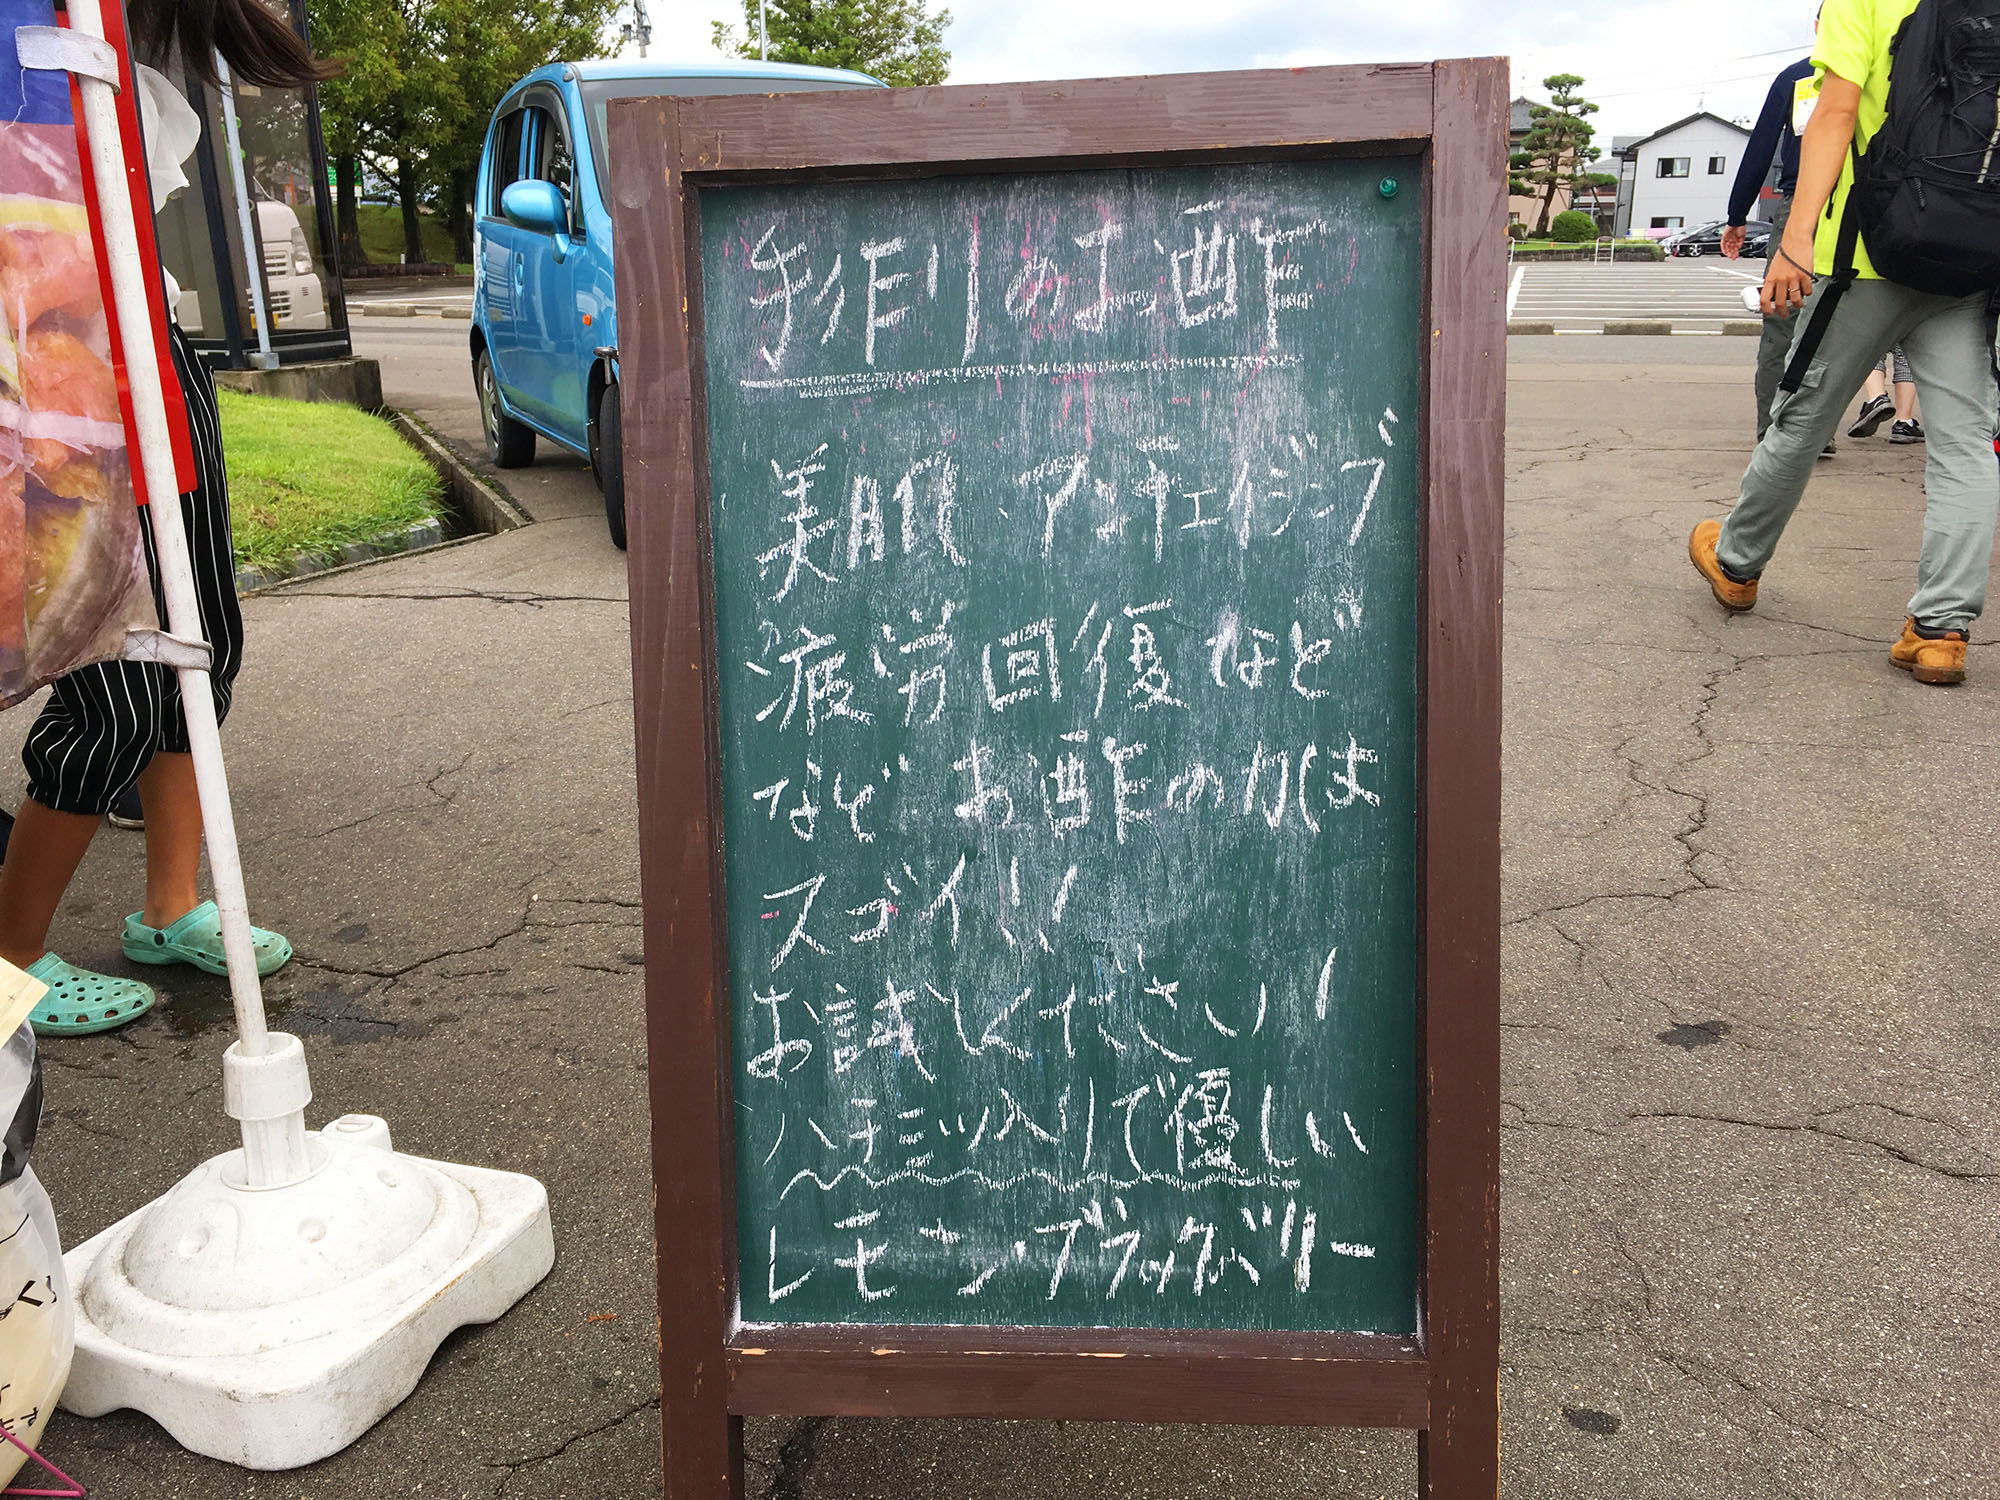 手作りのお酢
美肌・アンチエイジング
疲労回復など
など。お酢の力は
スゴイ!!
お試しください!
ハチミツ入りで優しい
レモン・ブラックベリー